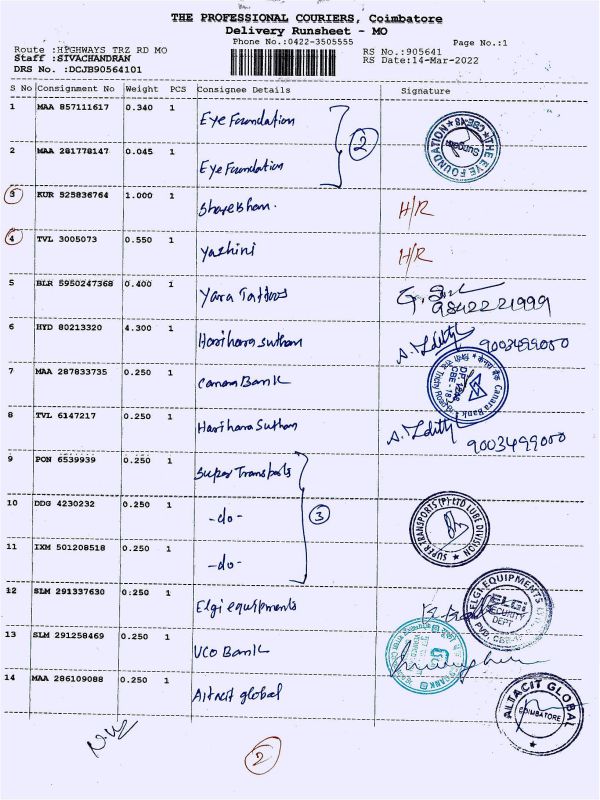 THE PROFESSIONAL COURIERS, Coimbatore
Delivery Runsheet - MO
Phone No.:0422-3505555
Page No.:1
Route :HIGHWAYS TRZ RD MO
Staff :SIVACHANDRAN
DRS No. :DCJB90564101
RS No.:905641
RS Date:14-Mar-2022
S No Consignment No Weight PCS Consignee Details Signature
1 MAA 857111617 0.340 1 Eye Foundation
2
THE EYE FOUNDATION CBE-18
2 MAA 281778147 0.045 1 Eye Foundation
3 KUR 525836764 1.000 1 H/R
4 TVL 3005073 0.550 1 Yazhini H/R
5 BLR 5950247368 0.400 1 Yara Tattoos
9842221999
6 HYD 80213320 4.300 1 Harihara Sutham 9003499000
7 MAA 287833735 0.250 1 Canara Bank
Canara Bank
8 TVL 6147217 0.250 1 Harihara Sutham 9003499000
9 PON 6539939 0.250 1 Super Transports
3
10 DDG 4230232 0.250 1 -do-
SUPER TRANSPORTS (P) LTD LUBE DIVISION
11 IXM 501208518 0.250 1 -do-
12 SLM 291337630 0.250 1 Elgi equipments
ELGI EQUIPMENTS
ELGI
SECURITY
DEPT
13 SLM 291258469 0.250 1 UCO Bank
14 MAA 286109088 0.250 1 Altacit global
ALTACIT GLOBAL
COIMBATORE
2